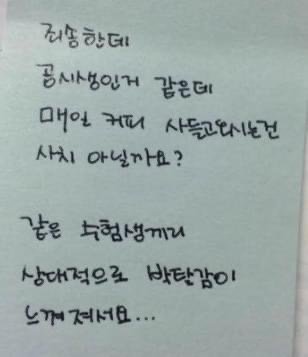 죄송한데
공시생인거 같은데
매일 커피 사들고오시는건
사치 아닐까요?
같은 수험생끼리
상대적으로 박탈감이
느껴져서요...